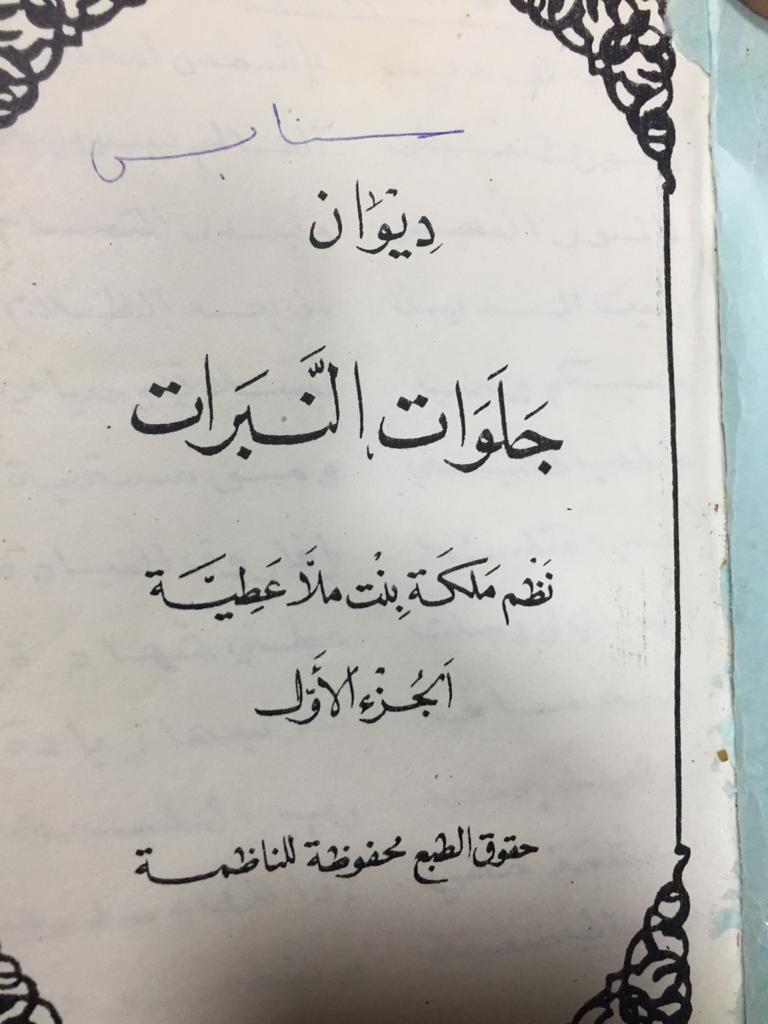 سنابس
ديوَان
جَلَوَات النَّبَرات
نَظْم مَلَكَة بِنْت ملاَّ عَطِيَّة
اَلجُزء الأوَّل
حقوق الطبع محفوظة للناظمة